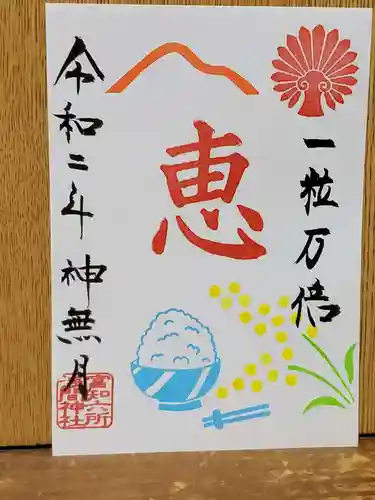 一粒万倍
恵
令和二年神無月
富知六所
浅間神社